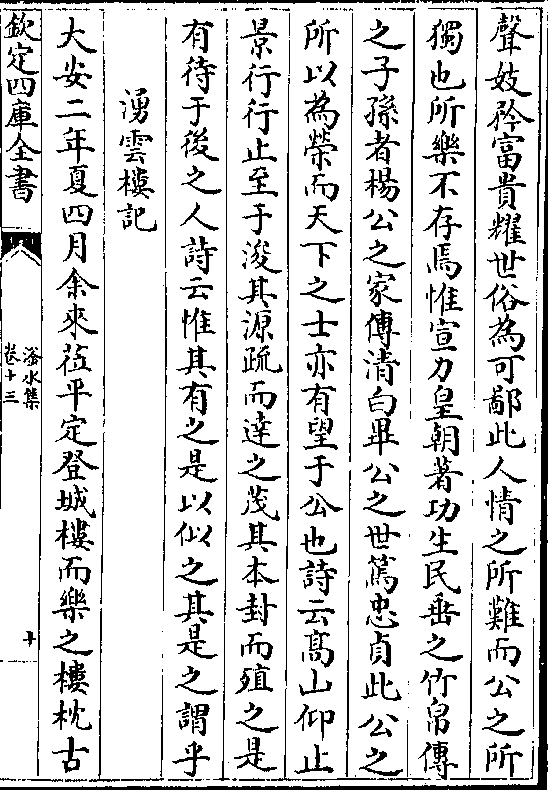 聲妓矜富貴耀世俗為可鄙此人情之所難而公之所
獨也所樂不存焉惟宣力皇朝著功生民垂之竹帛傳
之子孫者楊公之家傳清白畢公之世篤忠貞此公之
所以為榮而天下之士亦有望于公也詩云髙山仰止
景行行止至于浚其源疏而達之茂其本封而殖之是
有待于後之人詩云惟其有之是以似之其是之謂乎
湧雲樓記
大安二年夏四月余來莅平定登城樓而樂之樓枕古
欽定四庫全書
滏水集
卷十三
十